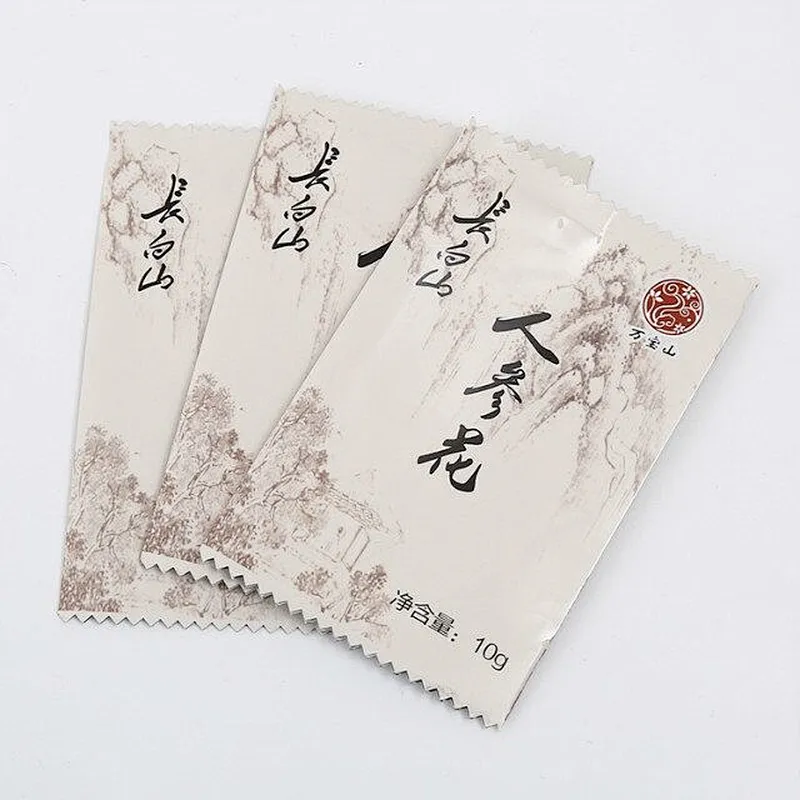 長白山
長白山
人
長白山
人参花
万宝山
净含量：10g